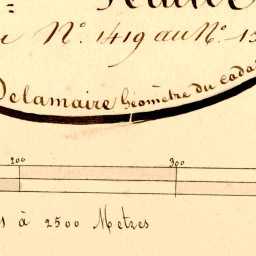 N°. 1419 au N°. 15
Delamaire Géomètre du cada
200 300
s à 2500 Metres